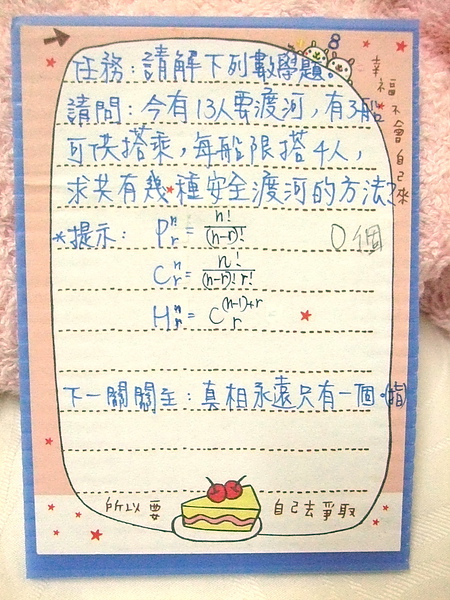 任務:請解下列數學題。
請問:今有13人要渡河,有3船
可供搭乘,每船限搭4人,
求共有幾種安全渡河的方法?
*提示: P^n_r = n!/(n-r)!
0個
C^n_r = n!/(n-r)!r!
H^n_r = C^(n-1)+r_r
下一關關主:真相永遠只有一個。(指)
幸福不會自己來
所以要 自己去爭取